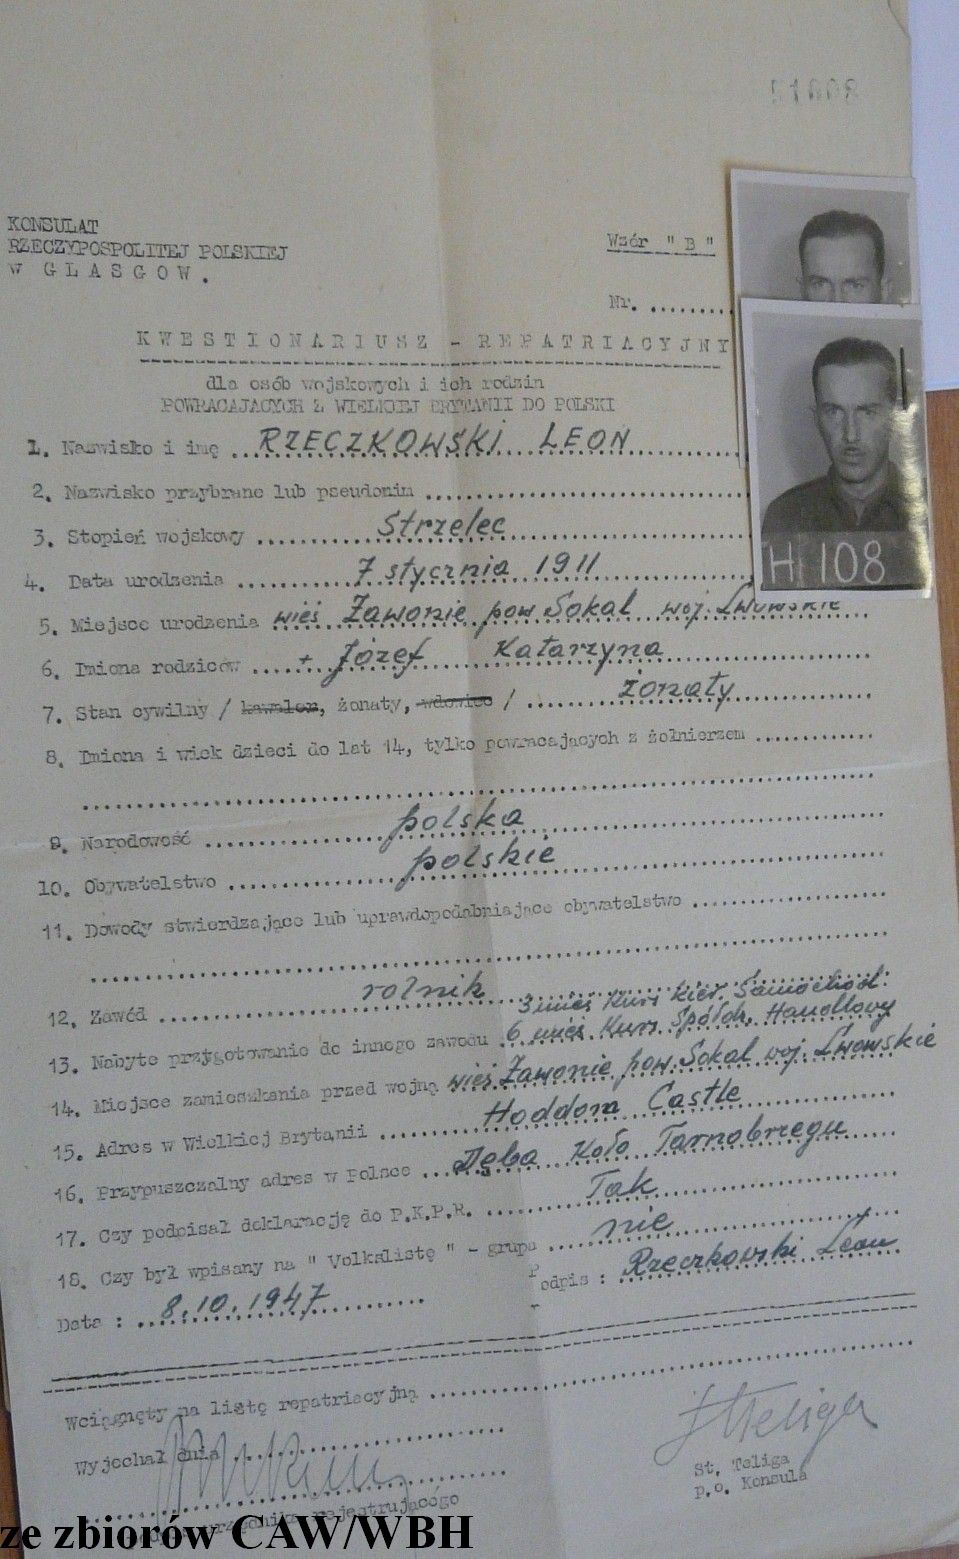 51008
KONSULAT
RZECZYPOSPOLITEJ POLSKIEJ
W GLASGOW.
Wzór "B"
Nr. ..........
KWESTIONARIUSZ - REPATRIACYJNY
dla osób wojskowych i ich rodzin
POWRACAJĄCYCH Z WIELKIEJ BRYTANII DO POLSKI
1. Nazwisko i imę ...RZECZKOWSKI LEON
2. Nazwisko przybrane lub pseudonim ..........
3. Stopień wojskowy .......... Strzelec
4. Data urodzenia .......... 7 stycznia 1911
5. Miejsce urodzenia wieś Zawonie pow. Sokal woj. Lwowskie
6. Imiona rodziców .... + Józef Katarzyna
7. Stan cywilny / kawaler, żonaty, wdowiec / .......... żonaty
8. Imiona i wiek dzieci do lat 14, tylko powracających z żołnierzem ..........
9. Narodowość .......... polska
10. Obywatelstwo .......... polskie
11. Dowody stwierdzające lub uprawdopodabniające obywatelstwo ..........
12. Zawód .......... rolnik
3 mies Kurs kier. Samochod.
13. Nabyte przygotowanie do innego zawodu . 6 mies Kurs Spółdz. Handlowy
14. Miejsce zamieszkania przed wojną wieś Zawonie pow. Sokal woj. Lwowskie
15. Adres w Wielkiej Brytanii .......... Hoddom Castle
16. Przypuszczalny adres w Polsce ... Dęba Koło Tarnobrzegu
17. Czy podpisał deklarację do P.K.P.R. .......... Tak
18. Czy był wpisany na " Volkslistę " - grupa .... nie
Data : ... 8.10.1947 .......... Podpis : Rzeczkowski Leon
Wciągnęty na listę repatriacyjną ..........
Wyjechał dnia ..........
StTeliga
St. Teliga
p.o. Konsula
podpis urzędnika rejestrującego
H 108
ze zbiorów CAW/WBH